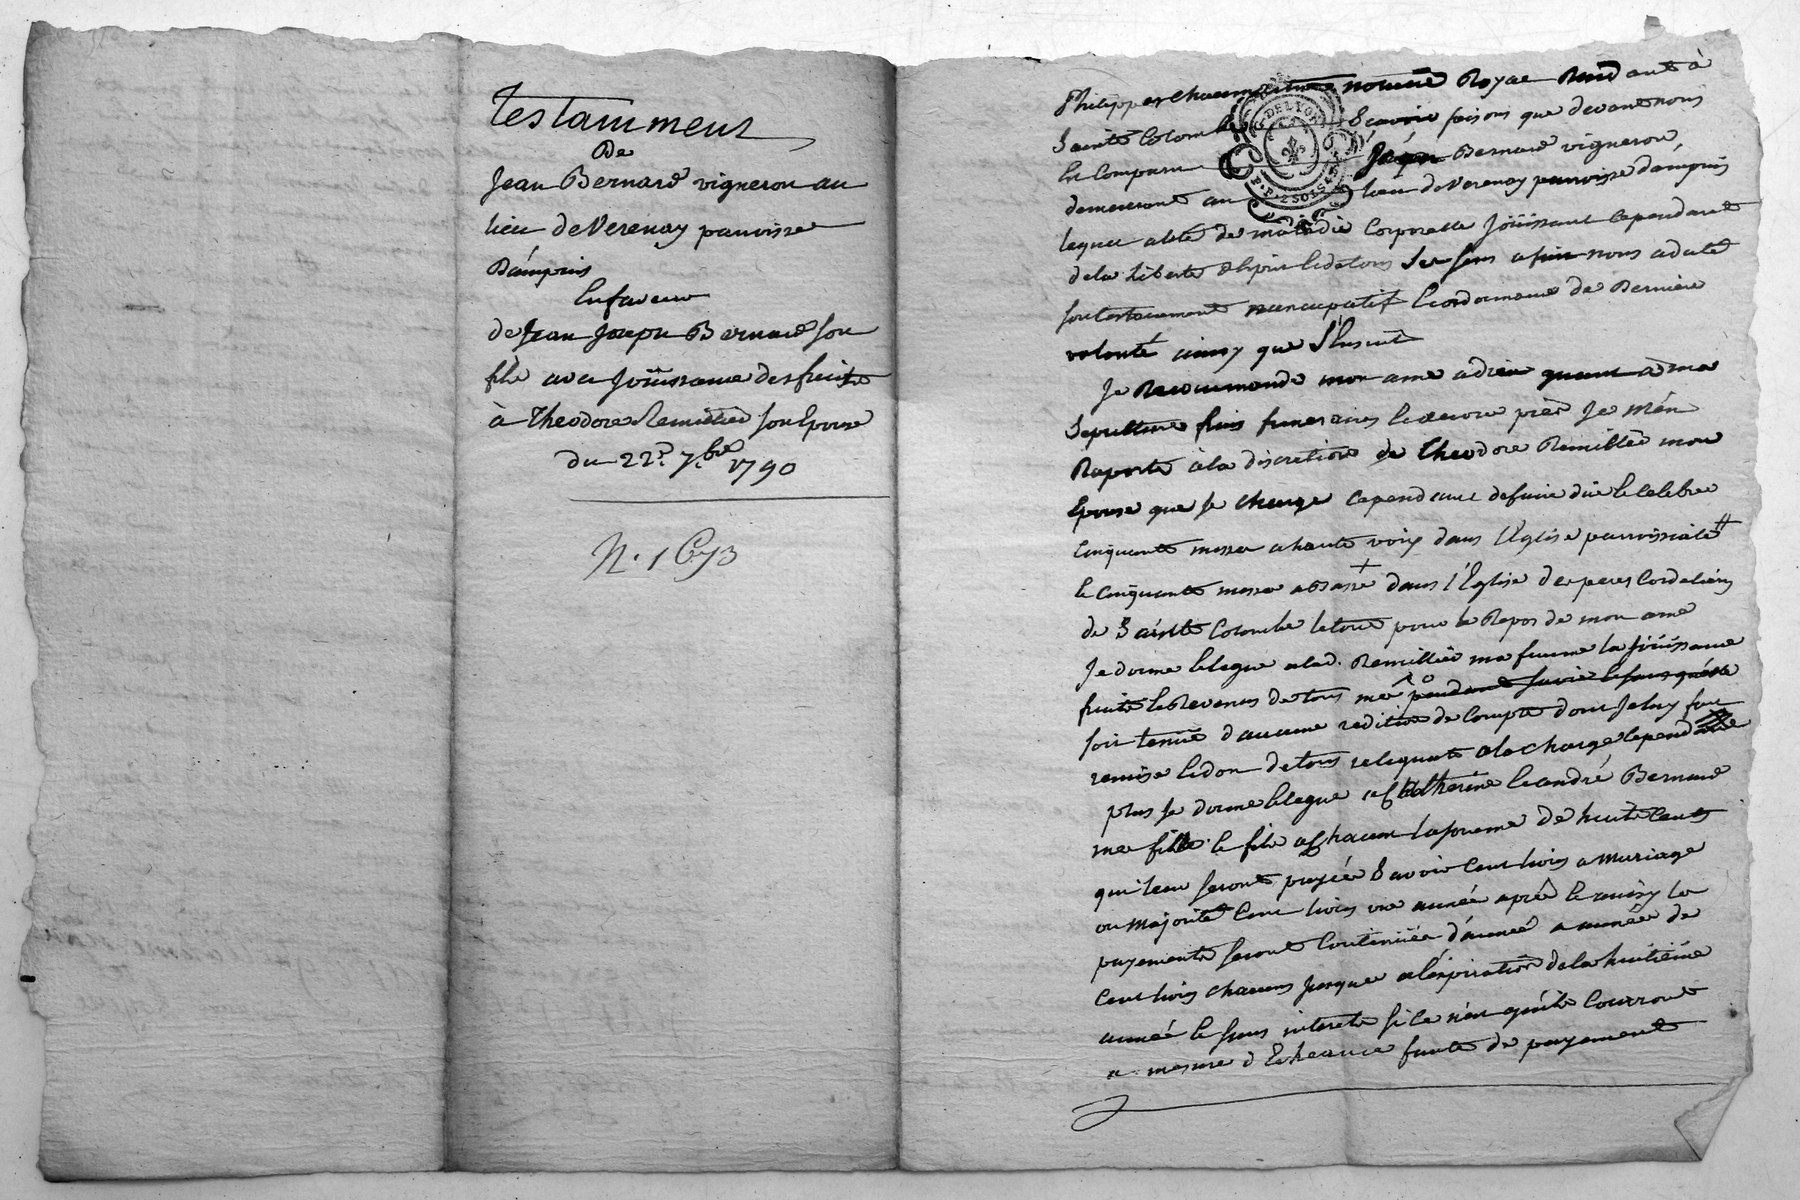 Testamment
De
Jean Bernard vigneron au
lieu de Verenay parroisse
Dámpuis
En faveur
de Jean Joseph Bernard son
fils avec Joüissance des fruits
à Theodore Remillier son Epouse
du 22e. 7.bre 1790
N. 1673
Philippe notaire Royal Residant à
Sainte Colombe Scavoir faisons que devant nous
En Comparu Jean Bernard vigneron
demeurant au lieu de Verenay parroisse dámpuis
lequel alité de maladie Corporelle Joüissant Cependant
de la liberté desprit & de tous Ses sens a fait nous a dicté
son testament nuncupatif & ordonnance de Derniere
volonté ainsy que S'Ensuit
Je Recommande mon ame a dieu quant a ma
Sepulture frais funeraires & œuvre pies Je m'en
Raporte à la discretion de Theodore Remillier mon
Epouse que Je charge Cependant de faire dire & Celebrer
Cinquante messes a haute voix dans l'Eglise parroissiale #
& Cinquante messes a basse + dans l'Eglise des peres Cordeliers
de Sainte Colombe le tout pour le Repos de mon ame
Je donne & legue a lad. Remillier ma femme la Joüissance
fruits & Revenus de tous mes pendant sa vie & sans quelle
soit tenüe d'aucune reditions de Compte dont Je luy fais
remise & don de tous reliquats a la charge Cependant
plus Je donne & legue a Catherine & andré Bernard
mes fille & fils a chacun la somme de huit Cents
qui leur seront payées Savoir Cent livres a Mariage
ou Majorité Cent livres une année après & ainsy les
payements seront Continüés d'année a année de
Cent livres chacuns Jusque a l'expiration de la huitième
année & sans interets si ce n'est qu'ils Courront
a mesure d'Echeance faute de payement
G. DE LYON
2 SOLS